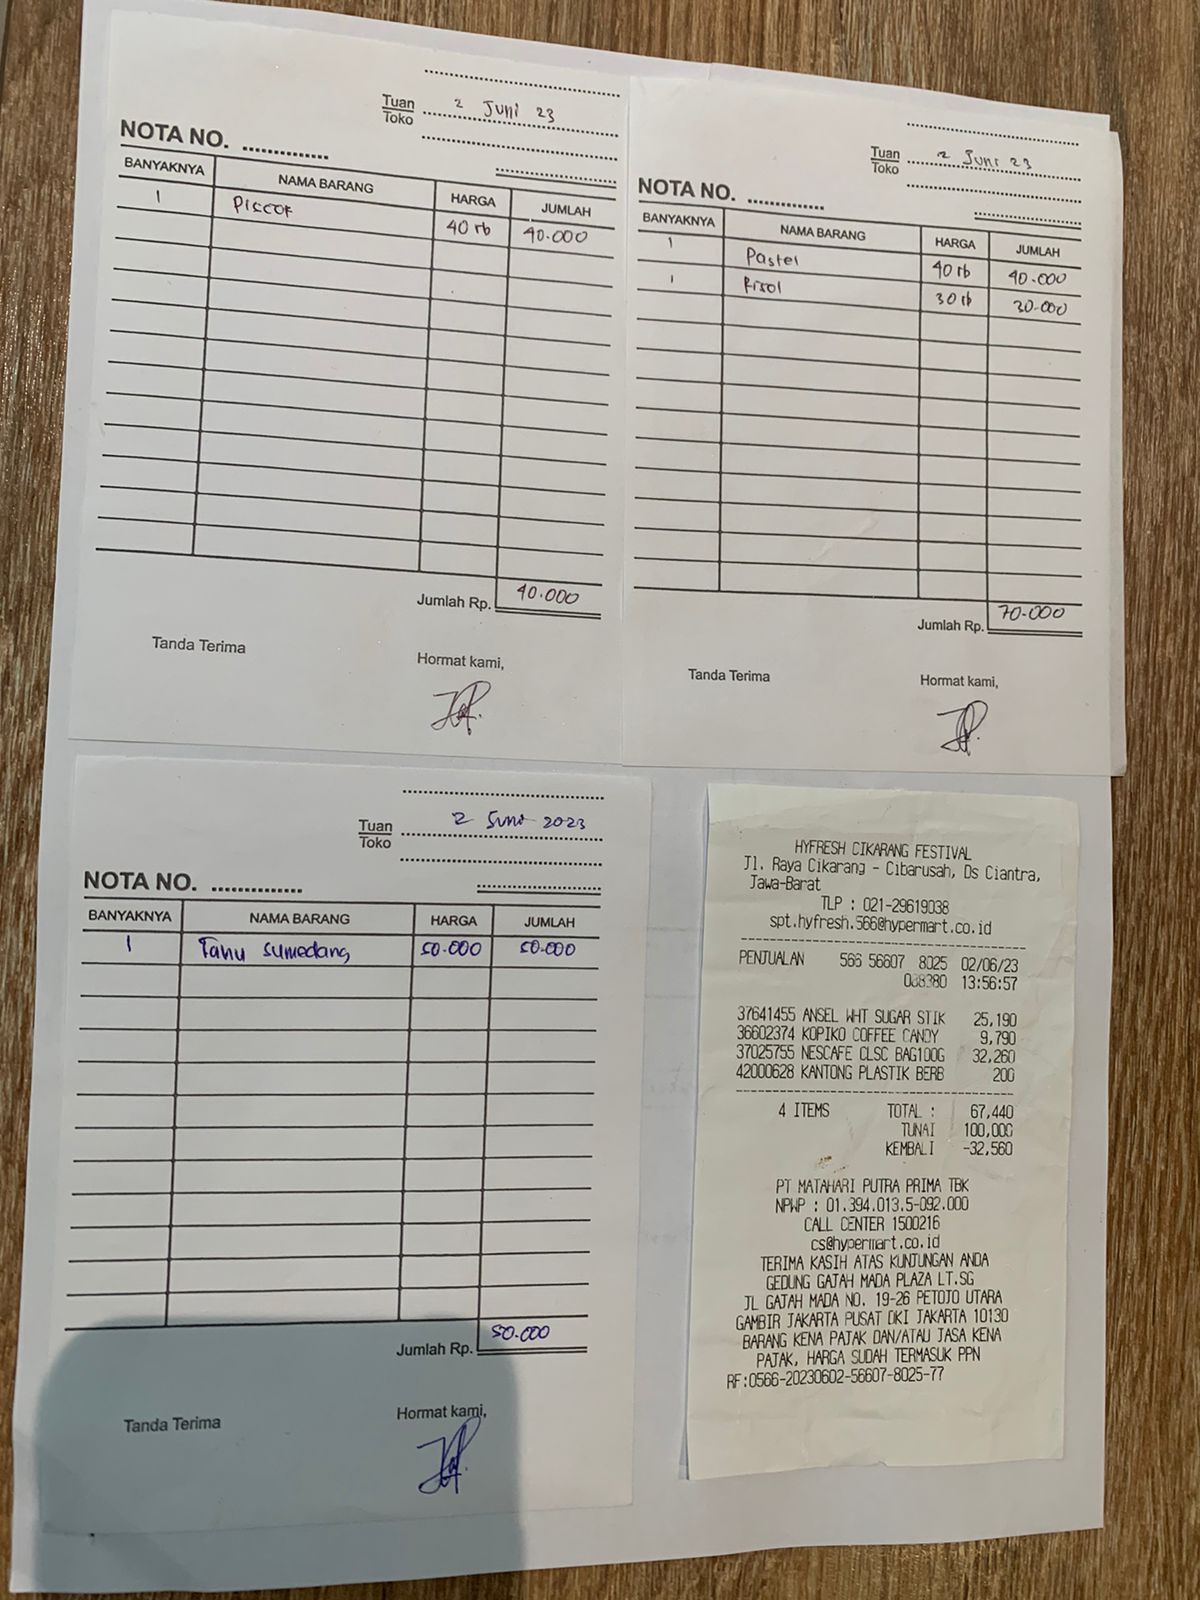 Tuan
Toko
2 Juni 23
NOTA NO.
BANYAKNYA NAMA BARANG HARGA JUMLAH
1 Piscok 40 rb 40.000
Jumlah Rp. 40.000
Tanda Terima Hormat kami,
Tuan
Toko
2 Juni 23
NOTA NO.
BANYAKNYA NAMA BARANG HARGA JUMLAH
1 Pastel 40 rb 40.000
1 Risol 30 rb 30.000
Jumlah Rp. 70.000
Tanda Terima Hormat kami,
Tuan
Toko
2 Juni 2023
NOTA NO.
BANYAKNYA NAMA BARANG HARGA JUMLAH
1 Tahu sumedang 50.000 50.000
Jumlah Rp. 50.000
Tanda Terima Hormat kami,
HYFRESH CIKARANG FESTIVAL
Jl. Raya Cikarang - Cibarusah, Ds Ciantra,
Jawa-Barat
TLP : 021-29619038
spt.hyfresh.566@hypermart.co.id
PENJUALAN 566 56607 8025 02/06/23
008380 13:56:57
37641455 ANSEL WHT SUGAR STIK 25,190
36602374 KOPIKO COFFEE CANDY 9,790
37025755 NESCAFE CLSC BAG100G 32,260
42000628 KANTONG PLASTIK BERB 200
4 ITEMS TOTAL : 67,440
TUNAI 100,000
KEMBALI -32,560
PT MATAHARI PUTRA PRIMA TBK
NPWP : 01.394.013.5-092.000
CALL CENTER 1500216
cs@hypermart.co.id
TERIMA KASIH ATAS KUNJUNGAN ANDA
GEDUNG GAJAH MADA PLAZA LT.SG
JL GAJAH MADA NO. 19-26 PETOJO UTARA
GAMBIR JAKARTA PUSAT DKI JAKARTA 10130
BARANG KENA PAJAK DAN/ATAU JASA KENA
PAJAK, HARGA SUDAH TERMASUK PPN
RF:0566-20230602-56607-8025-77